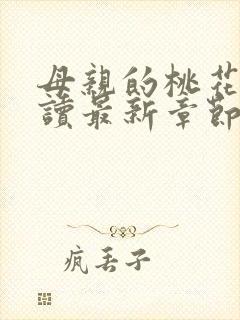 母親的桃花
讀最新章節
疯丢子